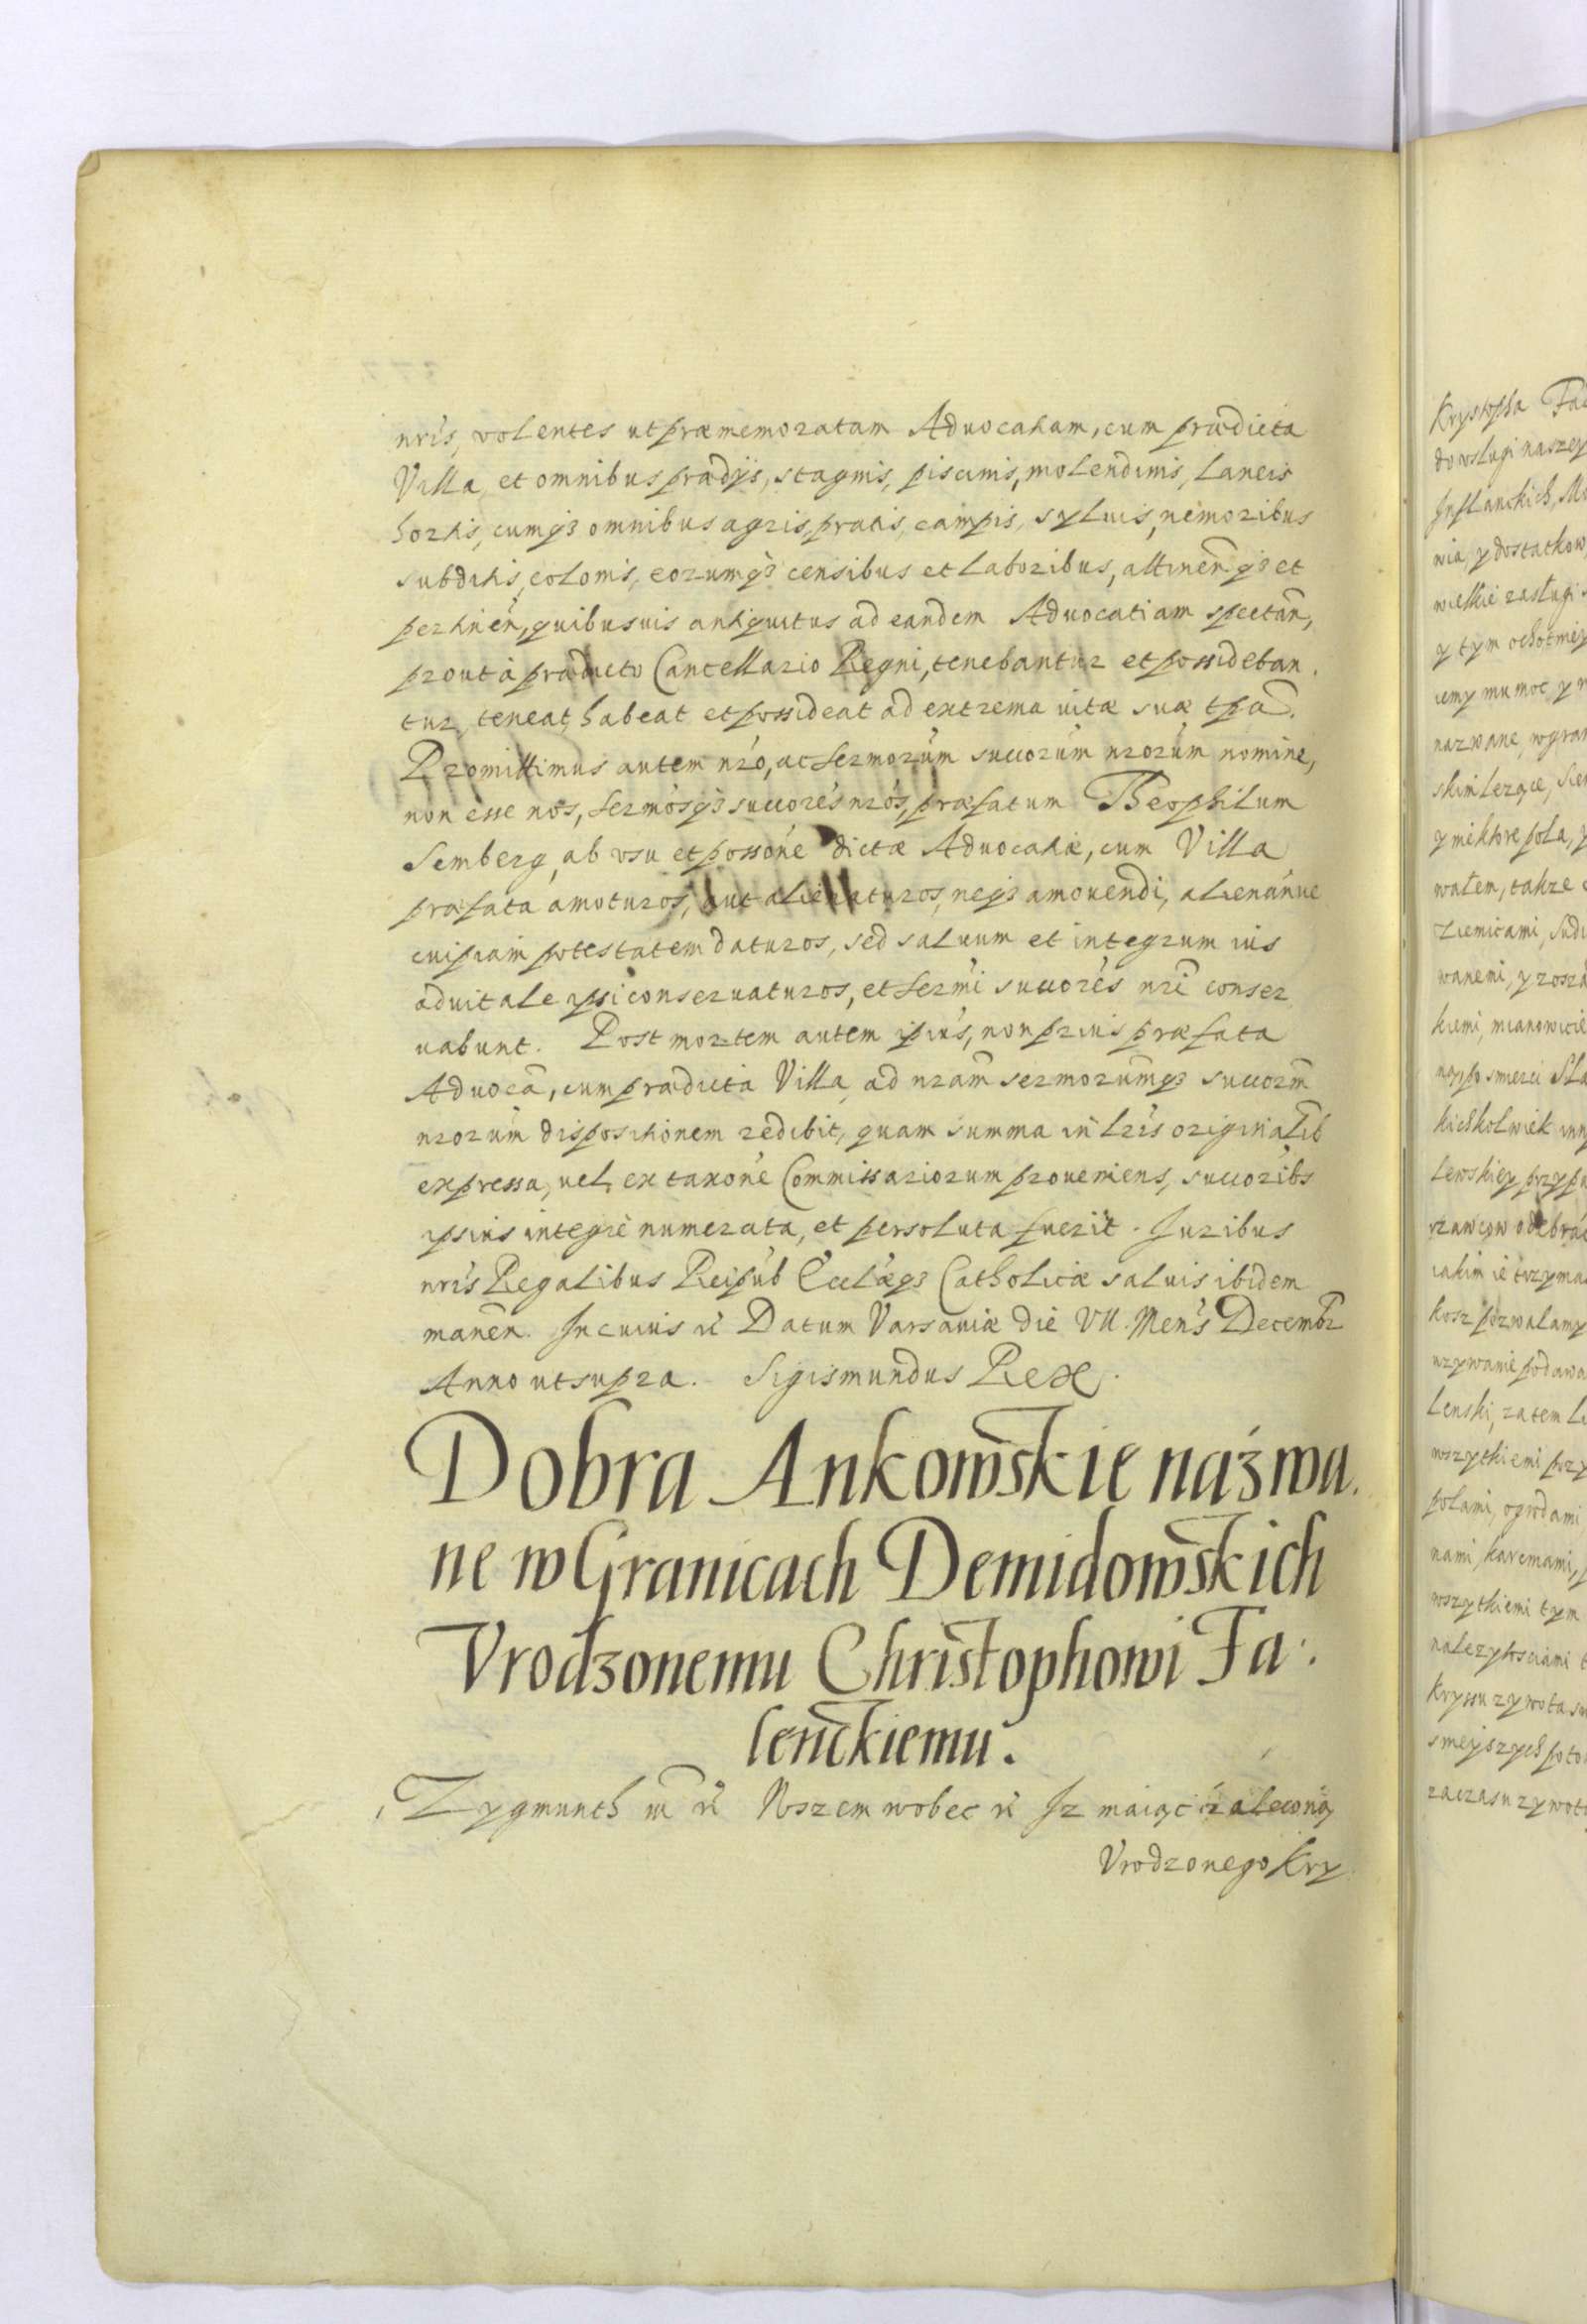 nris, volentes ut præmemoratam Advocatiam, cum prædicta
Villa, et omnibus prædijs, stagnis, piscinis, molendinis, laneis
hortis, cumq3 omnibus agris, pratis, campis, syluis, nemoribus
subditis, colonis, eorumq3 censibus et laboribus, attinen̄ q3 et
pertinen̄, quibusuis antiquitus ad eandem Advocatiam spectan̄,
prout à prædicto Cancellario Regni, tenebantur et possideban
tur, teneat, habeat et possideat ad extrema uitæ suæ tpa.
Promittimus autem nro, ac Sermorum succorum nrorum nomine,
non esse nos, Sermosq3 succores nros, præfatum Theophilum
Semberg, ab usu et possone dictæ Advocatiæ, cum Villa
præfata amoturos, aut alienaturos, neq3 amouendi, alienanue
cuipiam potestatem daturos, sed saluum et integrum ius
aduitale ipsi conseruaturos, et Sermi succores nri conser
uabunt. Post mortem autem ipius, non prius præfata
Advoca, cum prædicta Villa, ad nram sermorumq3 succorm
nrorum dispositionem redibit, quam summa in lris originalib
expressa, uel ex taxone Commissariorum proueniens, succoribs
ipsius integre numerata, et persoluta fuerit. Juribus
nris Regalibus Reipub Ecclæq3 Catholicæ saluis ibidem
manen. In cuius rei Datum Varsauiæ die VII. Mens Decembr
Anno ut supra. Sigismundus Rex.
Dobra Ankowskie názwa.
ne w Granicach Demidowskich
Vrodzonemu Christophowi Fa:
lenckiemu.
Zygmunth III rc Wszem wobec rc Iz maiąc zaleconą
Vrodzonego Kry
Krystopha Fa
do usługi naszey
Inflanckich, Mo
nia, y dostatkow
wielkie zasługi
y tym ochotniey
iemy mu moc y
nazwane, w gran
skim lezące, Sie
y niektore pola, y
wałem, takze
Ziemicami, Sudi
wanemi, y rosza
kiemi, mianowicie
na, po smierci Sta
kichkolwiek inn
lewskiey przypu
rzawcow odebrac
iakim ie trzyma
kosz pozwalamy
uzywanie podawa
Lenski, zatem
wszytkiemi przy
polami, ogrodami
nami, karcmami,
wszytkiemi tym
nalezytosciami
Kryssu zywota
smeyszych poto
za czasu zywot